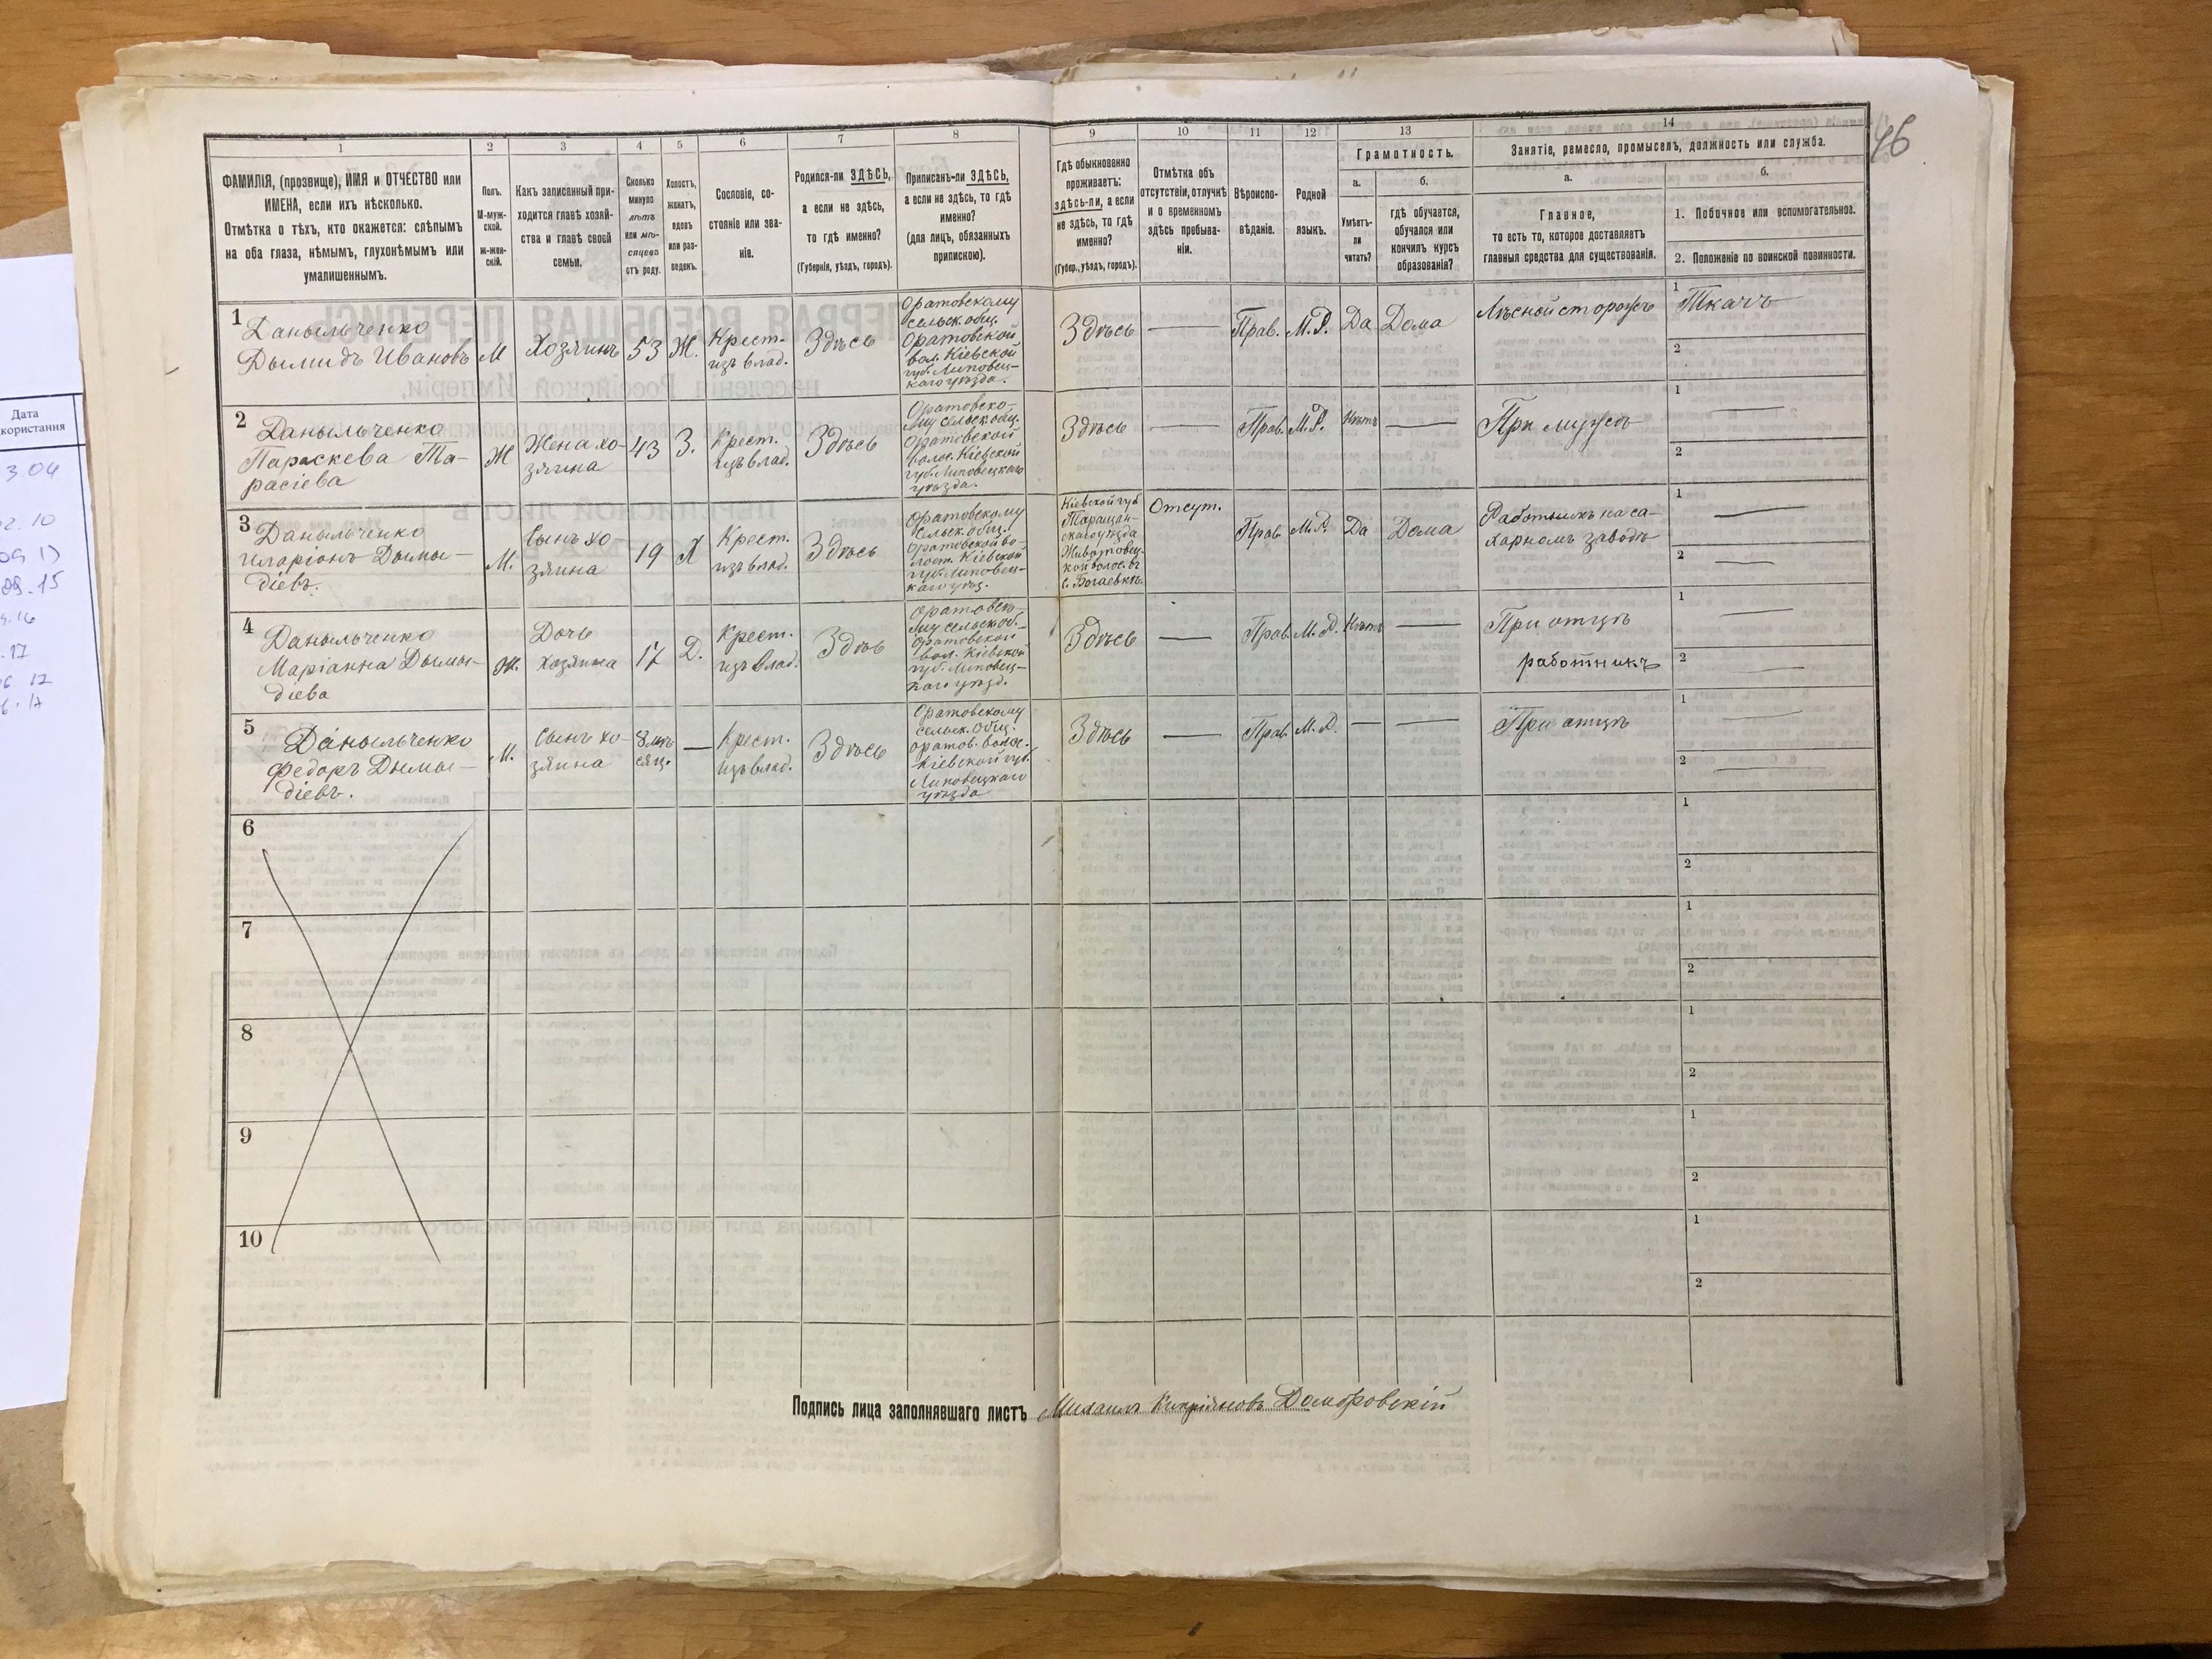 46
1
2
3
4
5
6
7
8
9
10
11
12
13
14
ФАМИЛІЯ, (прозвище), ИМЯ и ОТЧЕСТВО или
ИМЕНА, если ихъ нѣсколько.
Отмѣтка о тѣхъ, кто окажется: слѣпымъ
на оба глаза, нѣмымъ, глухонѣмымъ или
умалишеннымъ.
Полъ.
М-муж-
ской.
ж-жен-
скій.
Какъ записанный при-
ходится главѣ хозяй-
ства и главѣ своей
семьи.
Сколько
минуло
лѣтъ
или мѣ-
сяцевъ
отъ роду.
Холостъ,
женатъ,
вдовъ
или раз-
веденъ.
Сословіе, со-
стояніе или зва-
ніе.
Родился-ли ЗДѢСЬ,
а если не здѣсь,
то гдѣ именно?
(Губернія, уѣздъ, городъ).
Приписанъ-ли ЗДѢСЬ,
а если не здѣсь, то гдѣ
именно?
(для лицъ, обязанныхъ
припискою).
Гдѣ обыкновенно
проживаетъ:
здѣсь-ли, а если
не здѣсь, то гдѣ
именно?
(Губер., уѣздъ, городъ).
Отмѣтка объ
отсутствіи, отлучкѣ
и о временномъ
здѣсь пребыва-
ніи.
Вѣроиспо-
вѣданіе.
Родной
языкъ.
Грамотность.
а.
Умѣетъ-
ли
читать?
б.
гдѣ обучается,
обучался или
кончилъ курсъ
образованія?
Занятіе, ремесло, промыселъ, должность или служба.
а.
Главное,
то есть то, которое доставляетъ
главныя средства для существованія.
б.
1. Побочное или вспомогательное.
2. Положеніе по воинской повинности.
1
Даныльченко
Дымидъ Ивановъ
М
Хозяинъ
53
Ж.
Крест.
изъ влад.
Здѣсь
Оратовскому
сельск. общ.
Оратовской
вол. Кіевской
губ. Липовец-
каго уѣзда.
Здѣсь
—
Прав.
М.Р.
Да
Дома
Лѣсной сторожъ
1
Ткачъ
2
2
Даныльченко
Параскева Та-
расіева
Ж
Жена хо-
зяина
43
З.
Крест.
изъ влад.
Здѣсь
Оратовско-
му сельск. общ.
Оратовской
волос. Кіевской
губ. Липовецкаго
уѣзда.
Здѣсь
—
Прав.
М.Р.
Нѣтъ
—
При мужѣ
1
—
2
3
Даныльченко
Иларіонъ Дымы-
діевъ.
М.
Сынъ хо-
зяина
19
Х
Крест.
изъ влад.
Здѣсь
Оратовскому
сельск. общ.
Оратовской во-
лост. Кіевской
губ. Липовец-
каго уѣзд.
Кіевской губ
Таращан-
скаго уѣзда
Животовец-
кой волос. въ
с. Богаевкѣ
Отсут.
Прав
М.Р.
Да
Дома
Работникъ на са-
харномъ заводѣ
1
—
2
—
4
Даныльченко
Маріанна Дымы-
діева
Ж.
Дочь
хозяина
17
Д.
Крест.
изъ влад.
Здѣсь
Оратовско-
му сельск. об.
Оратовской
вол. Кіевской
губ. Липовец-
каго уѣзд.
Здѣсь
—
Прав.
М.Р.
Нѣтъ
—
При отцѣ
работникъ
1
—
2
—
5
Даныльченко
Федоръ Дымы-
діевъ.
М.
Сынъ хо-
зяина
8 мѣ-
сяц.
—
Крест.
изъ влад.
Здѣсь
Оратовскому
сельск. общ.
Оратов. волос.
Кіевской губ.
Липовецкаго
уѣзда
Здѣсь
—
Прав.
М.Р.
—
—
При отцѣ
1
—
2
—
6
1
2
7
1
2
8
1
2
9
1
2
10
1
2
Подпись лица заполнявшаго листъ Михаилъ Домбровскій
Дата
користання
3.04